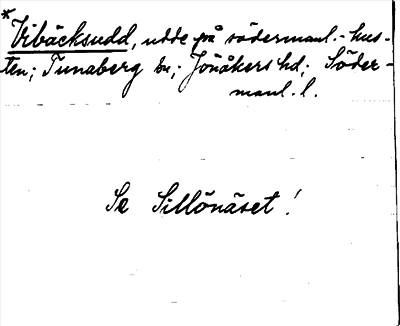 *
Vibäcksudd, udde på södermanl.-kus-
ten; Tunaberg sn; Jönåkers hd; Söder-
manl. l.
Se Sillönäset!